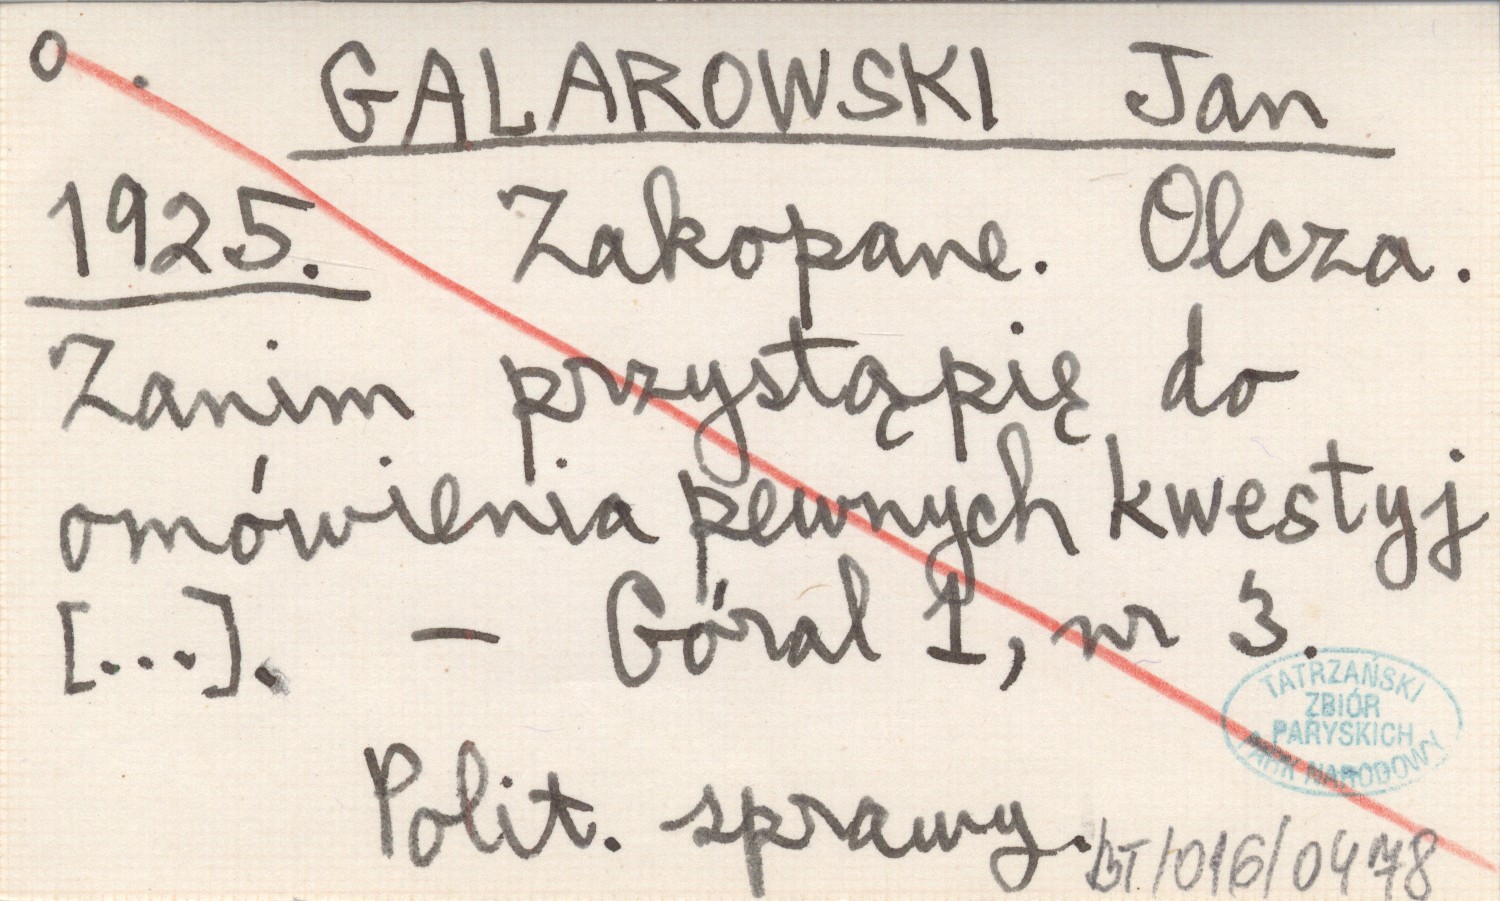 o . GALAROWSKI Jan
1925. Zakopane. Olcza.
Zanim przystąpię do
omówienia pewnych kwestyj
[...]. — Góral 1, nr 3.
TATRZAŃSKI
ZBIÓR
PARYSKICH
PARK NARODOWY
Polit. sprawy.
BT/016/0478